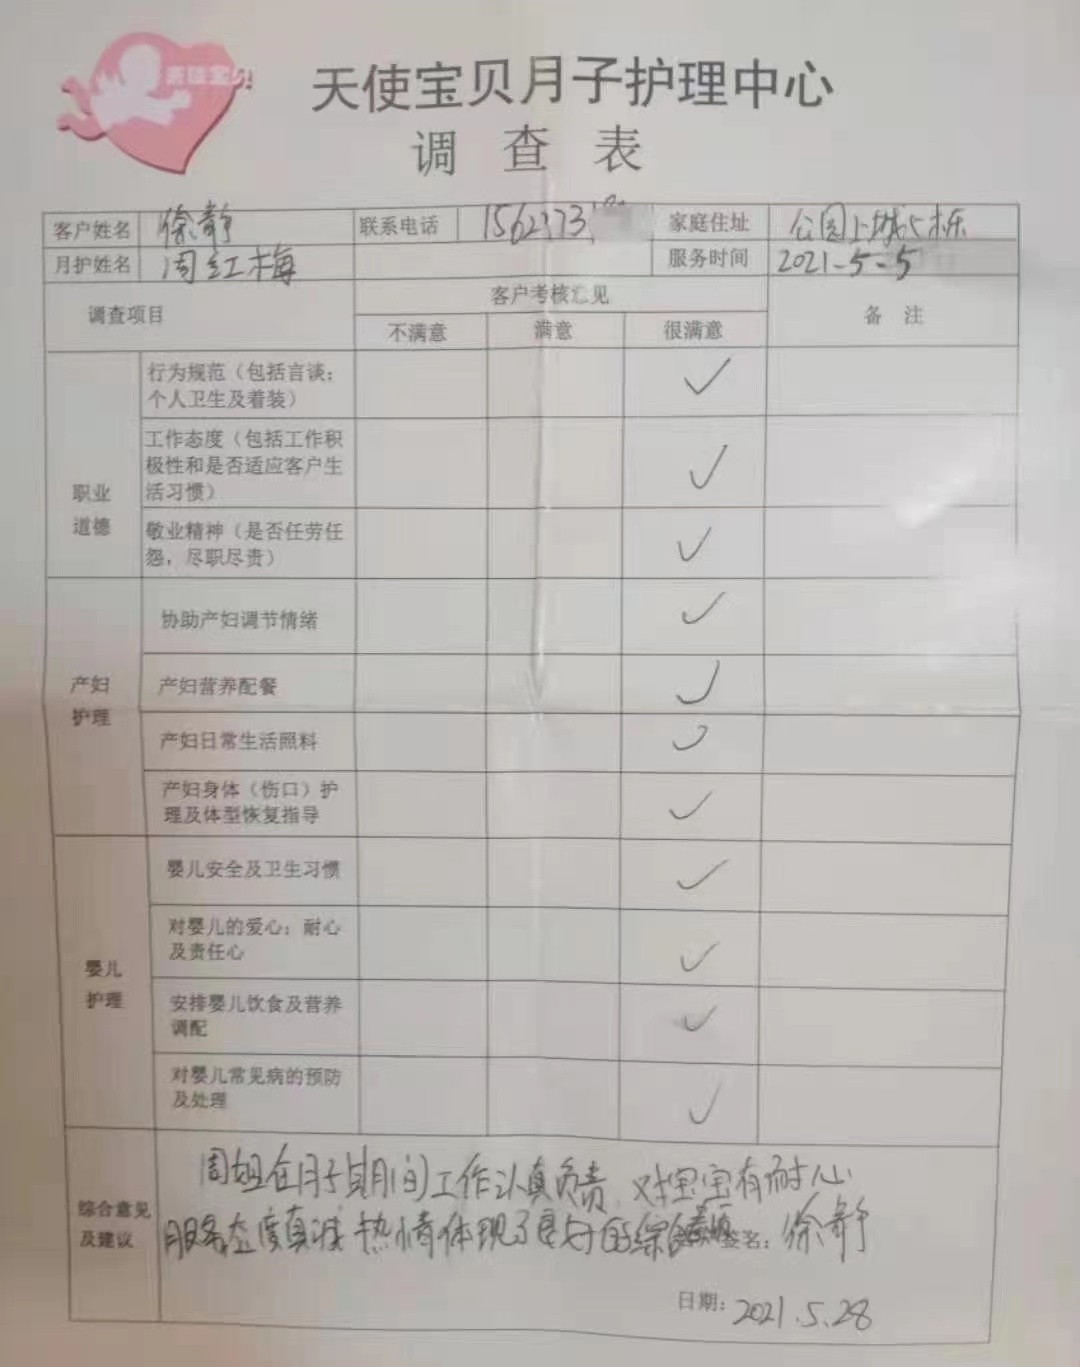 天使宝贝
天使宝贝月子护理中心
调 查 表
客户姓名 徐静 联系电话 1562373 家庭住址 公园上城5栋
月护姓名 周红梅 服务时间 2021-5-5
调查项目 客户考核意见 备 注
不满意 满意 很满意
职业
道德
行为规范（包括言谈；
个人卫生及着装）
工作态度（包括工作积
极性和是否适应客户生
活习惯）
敬业精神（是否任劳任
怨，尽职尽责）
产妇
护理
协助产妇调节情绪
产妇营养配餐
产妇日常生活照料
产妇身体（伤口）护
理及体型恢复指导
婴儿
护理
婴儿安全及卫生习惯
对婴儿的爱心；耐心
及责任心
安排婴儿饮食及营养
调配
对婴儿常见病的预防
及处理
综合意见
及建议
周姐在月子期间工作认真负责，对宝宝有耐心
服务态度真诚 热情体现了良好的综合素质 签名：徐静
日期：2021.5.28